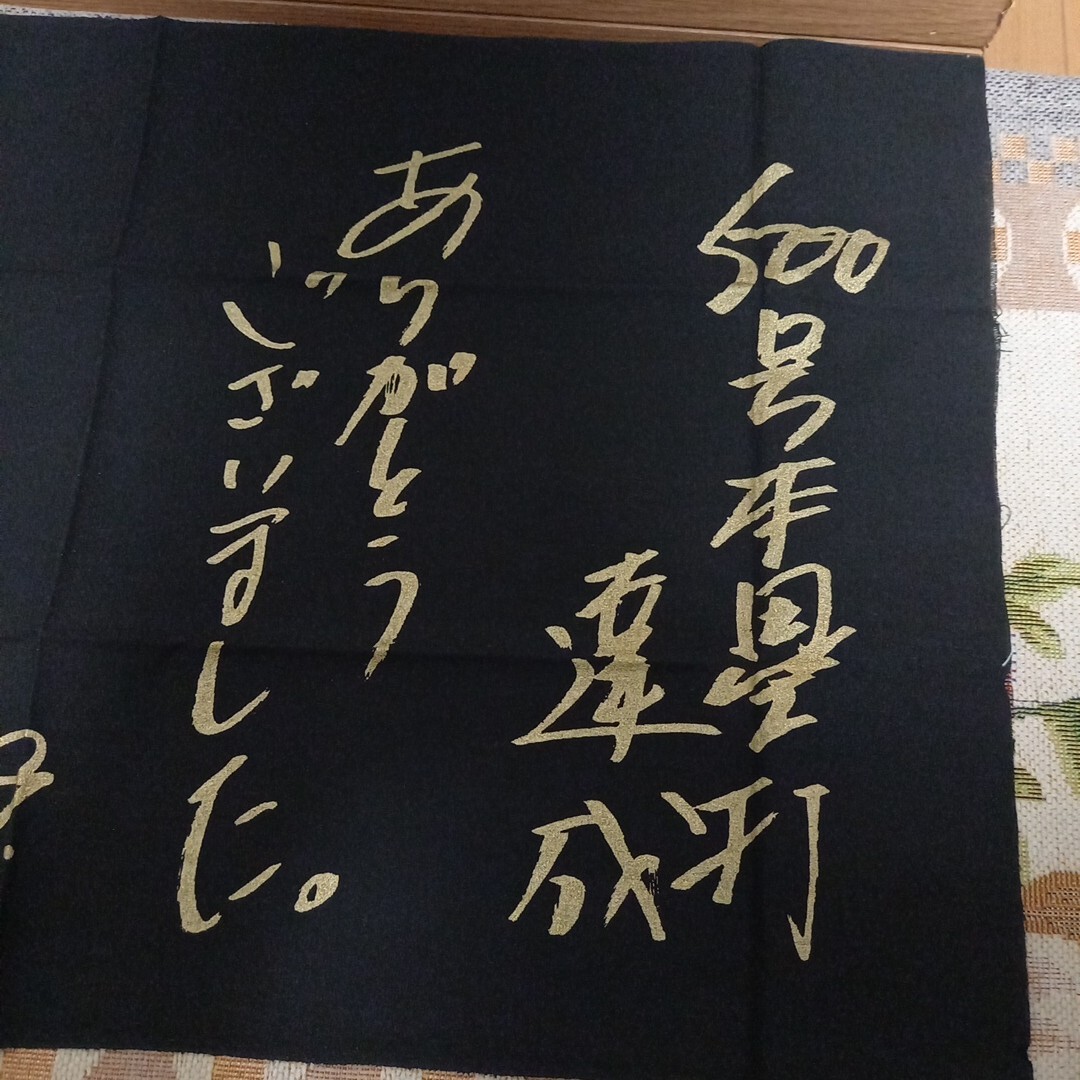 500号本塁打
達成
ありがとう
ございました。